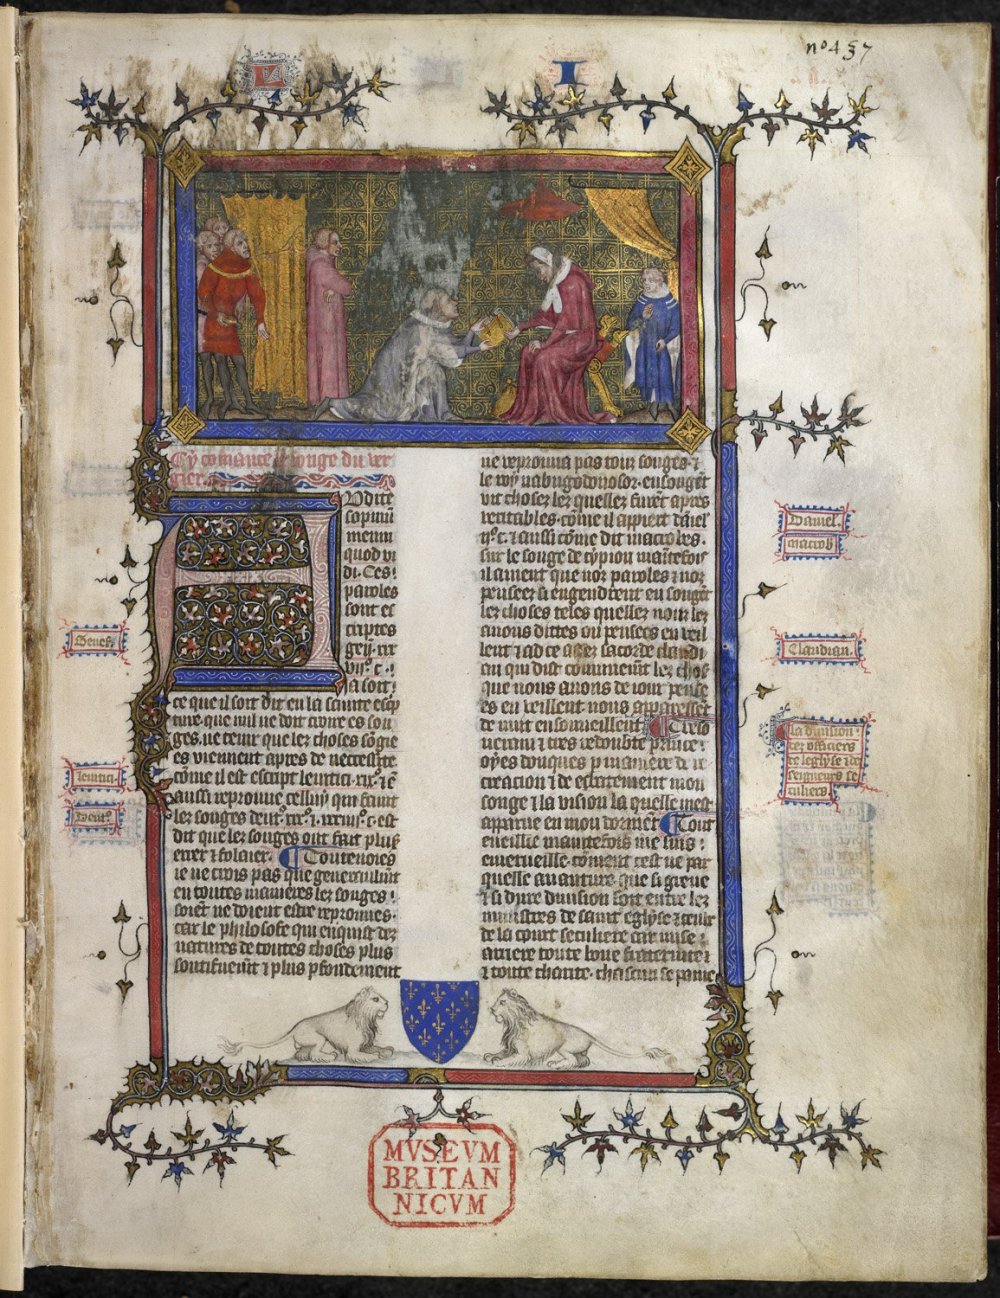 nº 457
I
Cy comance le songe du ver
gier.
Udite
sopnium
meum
quod vi
di. Ces
paroles
sont es
criptes
gen. xxx
vijº. c.
Ja soit
ce que il soit dit en la sainte escrip
ture. que nul ne doit croire es son
ges. ne tenir que les choses songie
es viennent apres de necessite
come il est escript levitici. xixº. c.
aussi reprouve celluy qui fait
les songes deutº. c. est
dit que les songes ont fait plus
errer foloier. Toutevoies
ie ne crois pas que generalment
en toutes manieres les songes
soient ne doient estre reprouves.
car le philosofe qui enquist des
natures de toutes choses plus
soutifvement plus profondement
ne reprouva pas tous songes.
le roy nabugodonosor. en songent
vit choses les quelles furent apres
veritables. come il appert daniel
ijº. c. aussi come dit macrobes.
sur le songe de cypion maintefois
il avient que nos paroles nos
pensees si engendrent en songent
les choses teles quelles nous les
avons dittes ou pensees en veil
lent ad ce assez sacorde claudi
an qui dist comment les chos
que nous avons de iour pense
es en veillent nous apparessent
de nuit en someillent Treso
verain tres redoubte prince
oyes donques par maniere de re
creacion de esbatement mon
songe la vision la quelle mest
apparue en mon dormant Tout
esveillie maintefois me suis
esmerveille. coment cest ne par
quelle avanture. que si greve
si dure division soit entre les
ministres de saint eglyse ceulx
de la court seculiere car mise
arriere toute bone fraternite
toute charite. chascun se paine
Daniel.
macrob
Claudian.
La division
des officiers
de leglyse de
seigneurs se
culiers
Genes.
levitici.
Deutº.
MVSEVM
BRITAN
NICVM